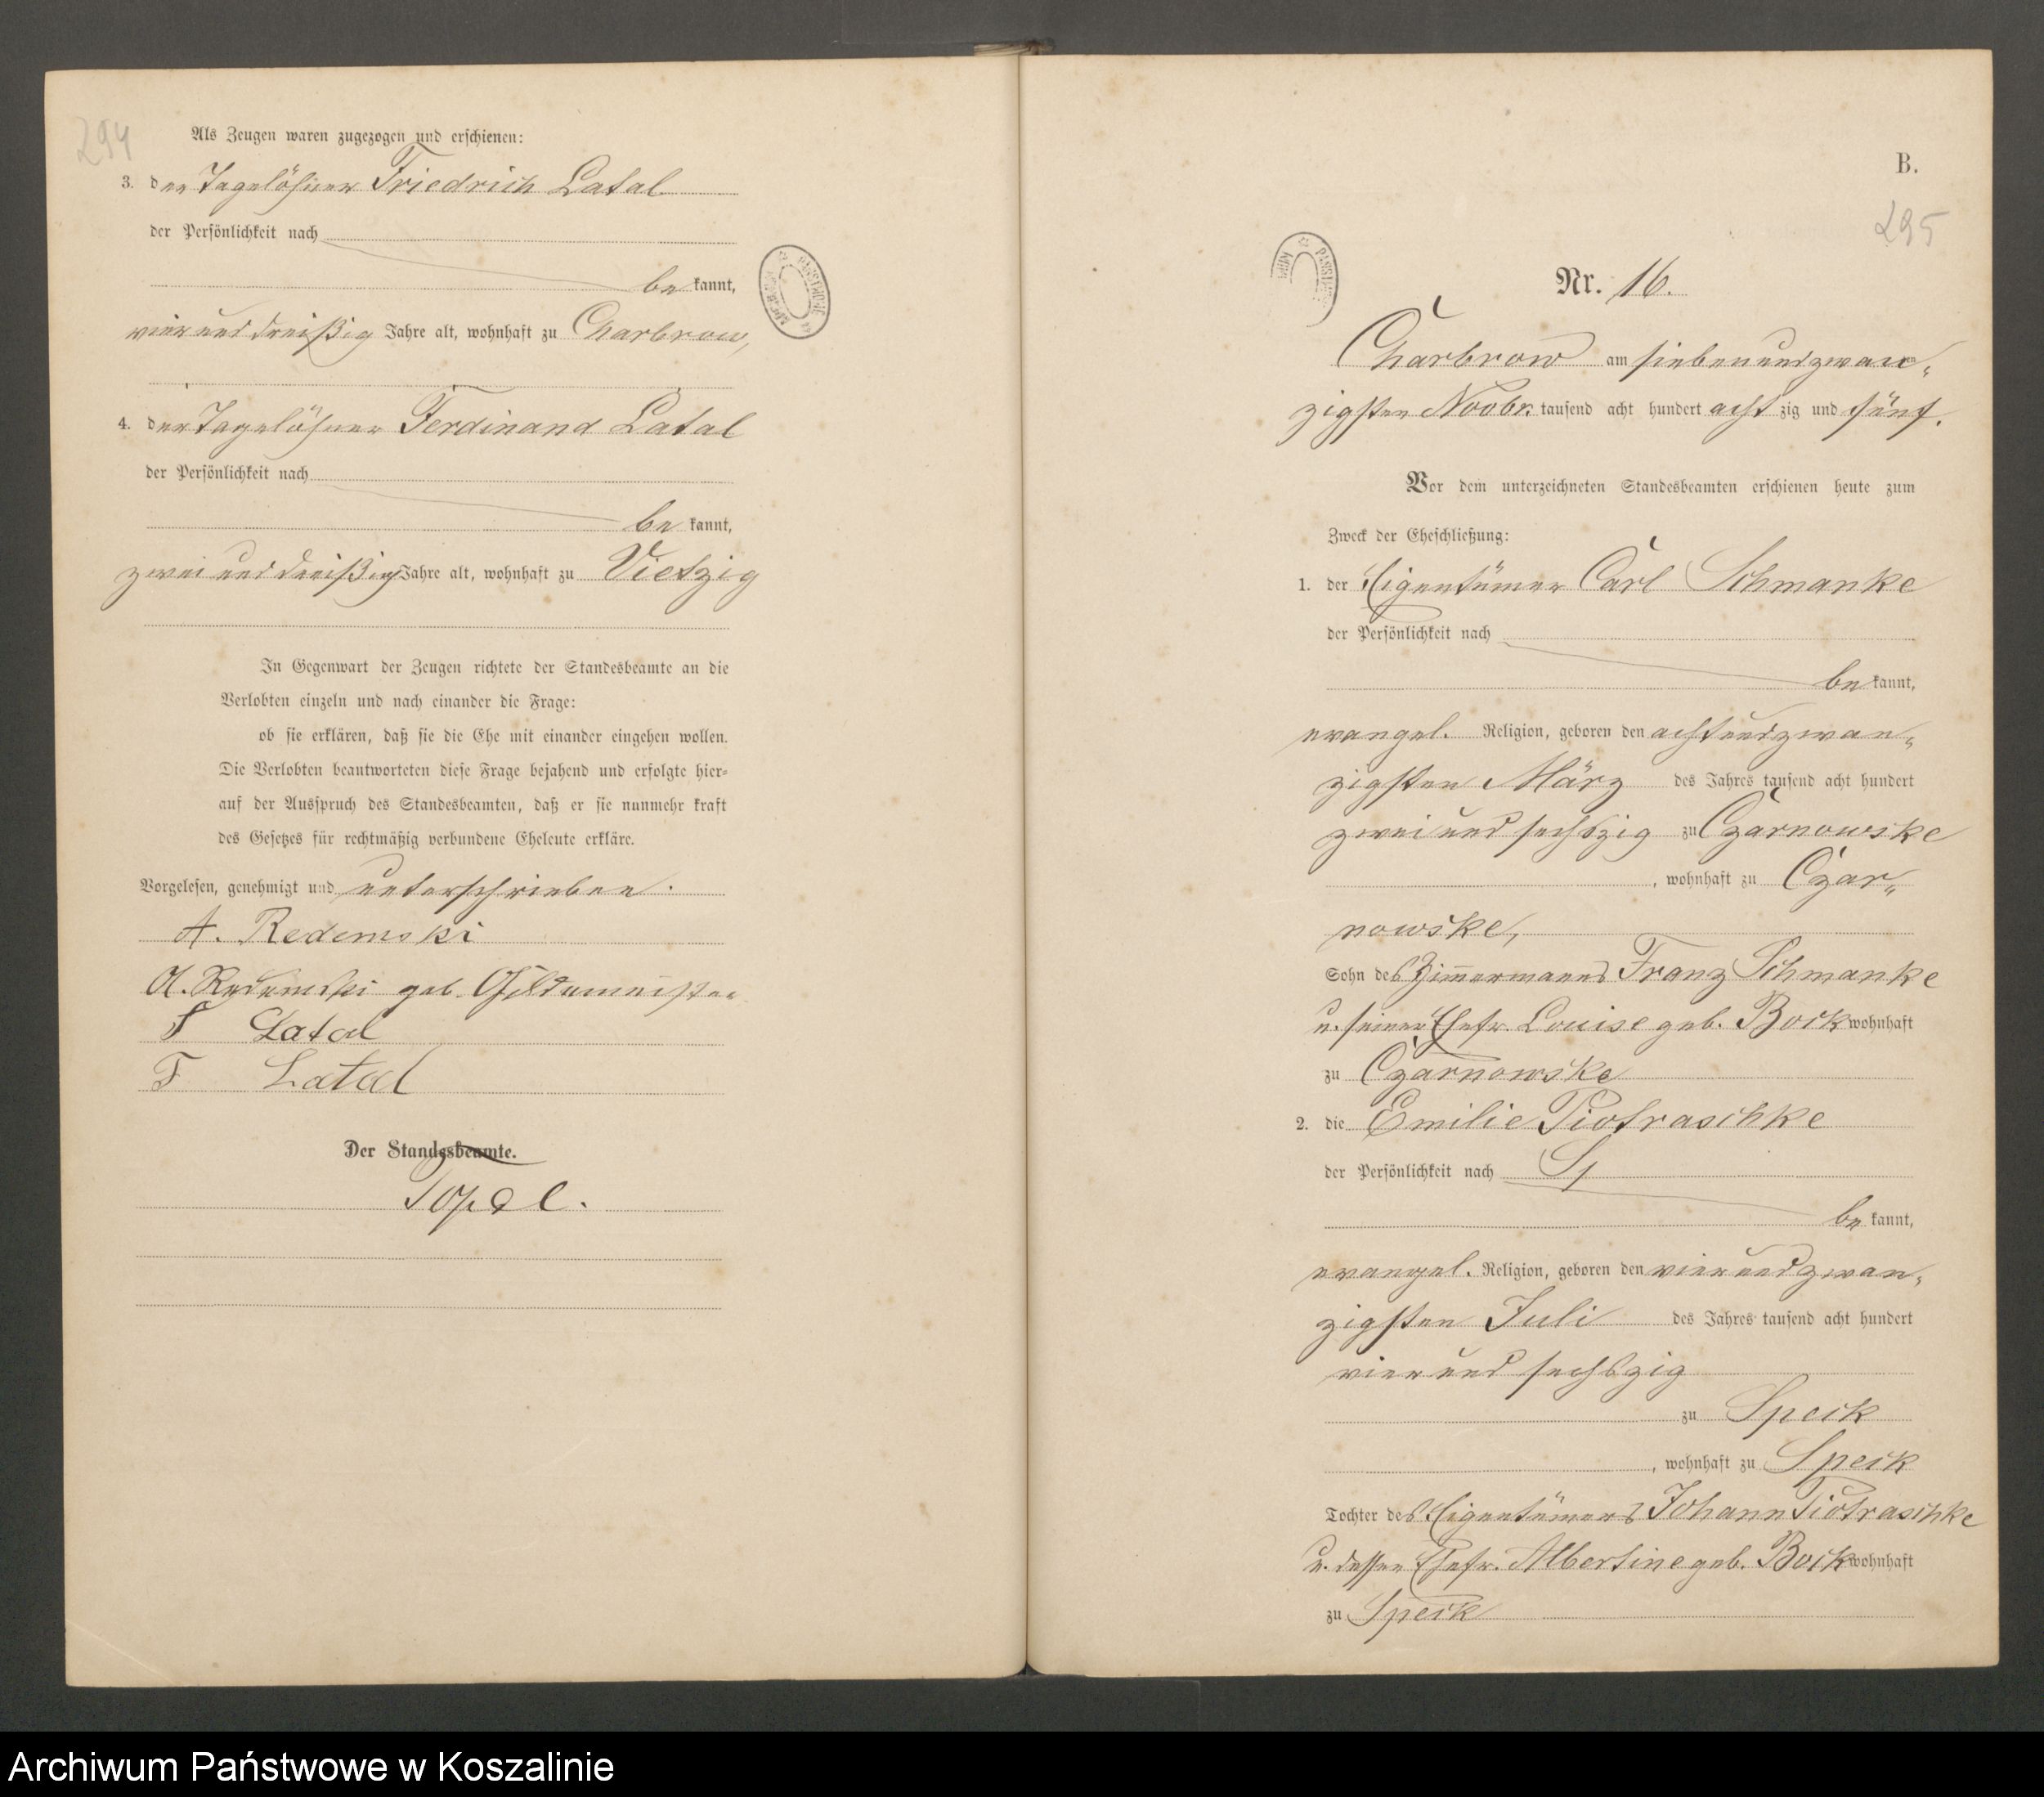 294
Als Zeugen waren zugezogen und erschienen:
3. der Tagelöhner Friedrich Latal
der Persönlichkeit nach
be kannt,
vier und dreißig Jahre alt, wohnhaft zu Charbrow,
4. der Tagelöhner Ferdinand Latal
der Persönlichkeit nach
be kannt,
zwei und dreißig Jahre alt, wohnhaft zu Vietzig
In Gegenwart der Zeugen richtete der Standesbeamte an die
Verlobten einzeln und nach einander die Frage:
ob sie erklären, daß sie die Ehe mit einander eingehen wollen.
Die Verlobten beantworteten diese Frage bejahend und erfolgte hier-
auf der Ausspruch des Standesbeamten, daß er sie nunmehr kraft
des Gesetzes für rechtmäßig verbundene Eheleute erkläre.
Vorgelesen, genehmigt und unterschrieben.
A. Redemski
A. Redemski geb.
F Latal
F Latal
Der Standesbeamte.
Topel.
B.
295
Nr. 16.
Charbrow am siebenundzwan-
zigsten Novbr. tausend acht hundert acht zig und fünf.
Vor dem unterzeichneten Standesbeamten erschienen heute zum
Zweck der Eheschließung:
1. der Eigentümer Carl Schmanke
der Persönlichkeit nach
be kannt,
evangel. Religion, geboren den achtundzwan-
zigsten März des Jahres tausend acht hundert
zwei und sechszig zu Czarnowske
, wohnhaft zu Czar-
nowske,
Sohn des Zimmermanns Franz Schmanke
u. seiner Ehefr. Louise geb. Bock wohnhaft
zu Czarnowske
2. die Emilie Piotraschke
der Persönlichkeit nach
be kannt,
evangel. Religion, geboren den vierundzwan-
zigsten Juli des Jahres tausend acht hundert
vier und sechszig
zu Speck
, wohnhaft zu Speck
Tochter des Eigentümers Johann Piotraschke
u. dessen Ehefr. Albertine geb. Bock wohnhaft
zu Speck
Archiwum Państwowe w Koszalinie